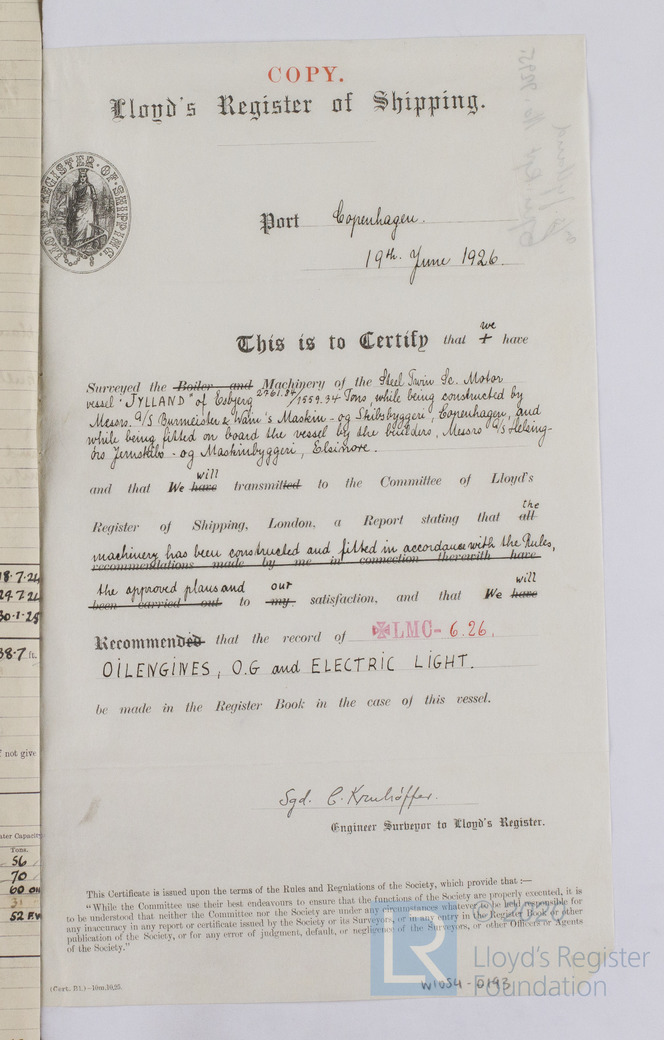 COPY.
Lloyd's Register of Shipping.
LLOYD'S REGISTER OF SHIPPING.
Port Copenhagen.
19th. June 1926.
we
This is to Certify that I have
Surveyed the Boiler and Machinery of the Steel Twin Sc. Motor
vessel "JYLLAND" of Esbjerg 2761.84/1559.34 Tons, while being constructed by
Messrs. A/S Burmeister & Wain's Maskin- og Skibsbyggeri, Copenhagen, and
while being fitted on board the vessel by the builders, Messrs A/S Helsing-
örs Jernskibs- og Maskinbyggeri, Elsinore.
will
and that We have transmitted to the Committee of Lloyd's
the
Register of Shipping, London, a Report stating that all
machinery has been constructed and fitted in accordance with the Rules,
recommendations made by me in connection therewith have
the approved plans and our will
been carried out to my satisfaction, and that We have
Recommended that the record of LMC- 6.26.
OILENGINES, O.G and ELECTRIC LIGHT.
be made in the Register Book in the case of this vessel.
Sgd. C.
Engineer Surveyor to Lloyd's Register.
This Certificate is issued upon the terms of the Rules and Regulations of the Society, which provide that :—
"While the Committee use their best endeavours to ensure that the functions of the Society are properly executed, it is
to be understood that neither the Committee nor the Society are under any circumstances whatever to be held responsible for
any inaccuracy in any report or certificate issued by the Society or its Surveyors, or in any entry in the Register Book or other
publication of the Society, or for any error of judgment, default, or negligence of the Surveyors, or other Officers or Agents
of the Society."
(Cert. B1.)—10m.10,25.
W1054-0193
© 2020
LR
Lloyd's Register
Foundation
18.7.24
29.7.24
30.1.25
38.7 ft.
f not give
ater Capacity
Tons.
56
70
60
31
52 F.W